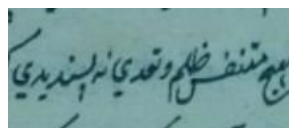 هيچ متنفس ظلم و تعدي نه پسنديدي